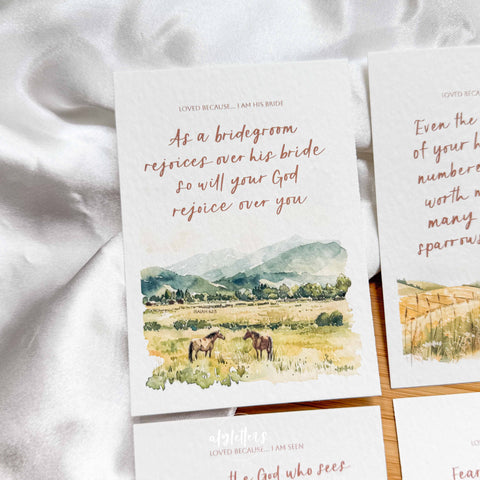 LOVED BECAUSE... I AM HIS BRIDE
As a bridegroom
rejoices over his bride
so will your God
rejoice over you
ISAIAH 62:5
LOVED BECAUSE...
Even the
of your h
numbered
worth m
many
sparrows
alyletters
LOVED BECAUSE... I AM SEEN
the God who sees
LO
Fear